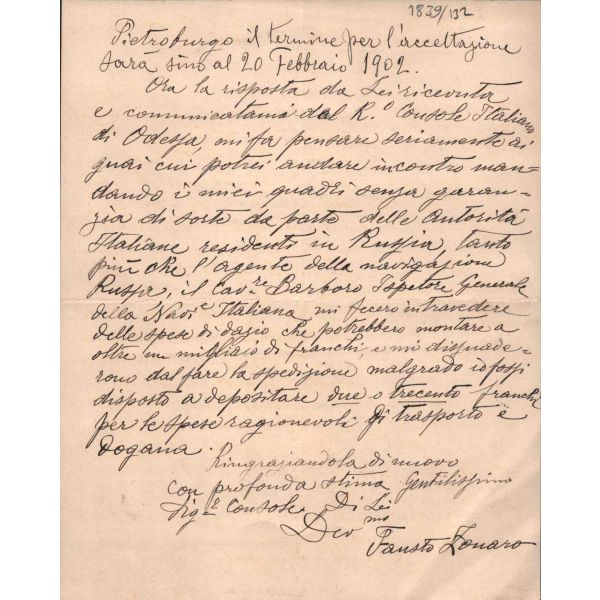 1839/132
Pietroburgo il termine per l'accettazione
sarà sino al 20 Febbraio 1902.
Ora la risposta da Lei ricevuta
e comunicatami dal R.º Console Italiano
di Odessa, mi fa pensare seriamente ai
guai cui potrei andare incontro man-
dando i miei quadri senza garan-
zia di sorte da parte delle Autorità
Italiane residenti in Russia, tanto
più che l'agente della navigazione
Russa, il Cavre Barboro Ispetore Generale
della Nave Italiana mi fecero intravedere
delle spese di dazio che potrebbero montare a
oltre un migliaio di franchi, e mi dissuade-
rono dal fare la spedizione malgrado io fossi
disposto a depositare due o trecento franchi
per le spese ragionevoli di trasporto e
dogana.
Ringraziandola di nuovo
con profonda stima Gentilissimo
Sigr Console Di Lei
Devmo
Fausto Zonaro